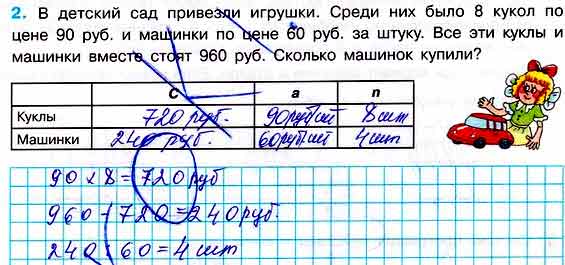 2. В детский сад привезли игрушки. Среди них было 8 кукол по
цене 90 руб. и машинки по цене 60 руб. за штуку. Все эти куклы и
машинки вместе стоят 960 руб. Сколько машинок купили?
C a n
Куклы 720 руб. 90руб/шт 8 шт
Машинки 240 руб. 60руб/шт 4 шт
90 x 8 = 720 руб
960 - 720 = 240 руб.
240 : 60 = 4 шт